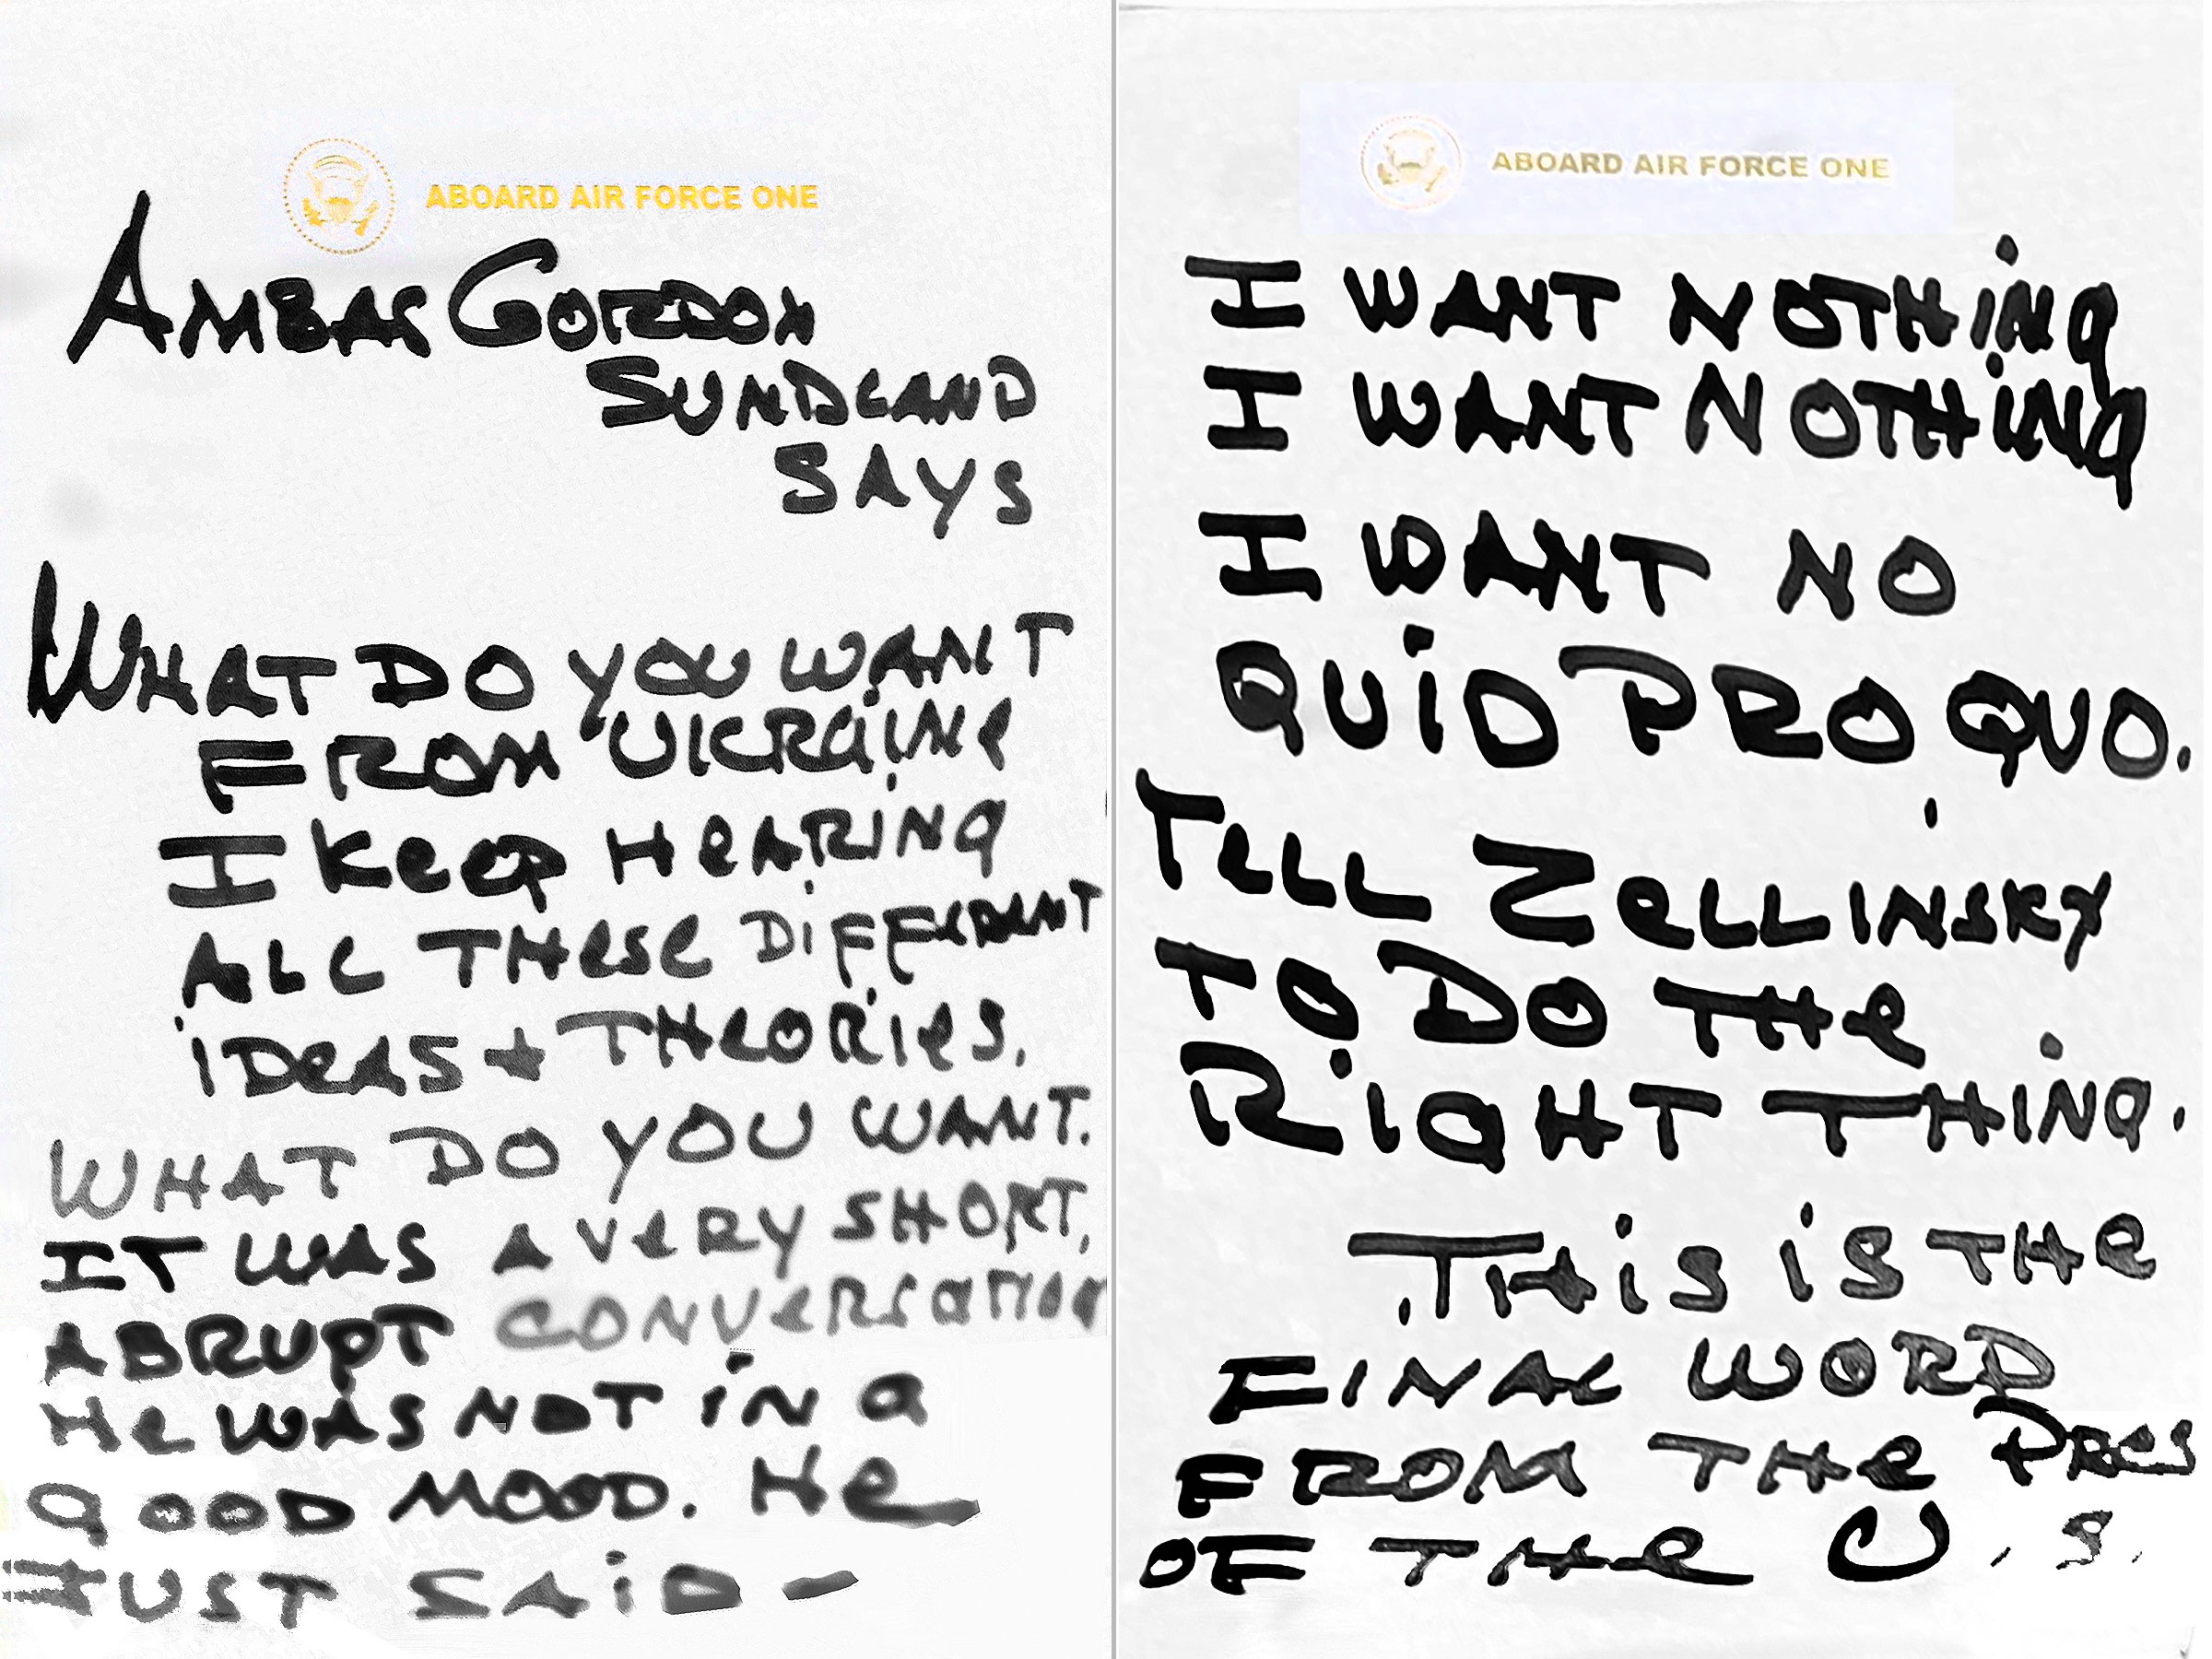 ABOARD AIR FORCE ONE
AMBAS GORDON
SUNDLAND
SAYS
WHAT DO YOU WANT
FROM UKRAINE
I KEEP HEARING
ALL THESE DIFFERENT
IDEAS + THEORIES.
WHAT DO YOU WANT.
IT WAS A VERY SHORT,
ABRUPT CONVERSATION
HE WAS NOT IN A
GOOD MOOD. HE
JUST SAID —
ABOARD AIR FORCE ONE
I WANT NOTHING
I WANT NOTHING
I WANT NO
QUID PRO QUO.
TELL ZELLINSKY
TO DO THE
RIGHT THING.
THIS IS THE
FINAL WORD
FROM THE PRES
OF THE U.S.